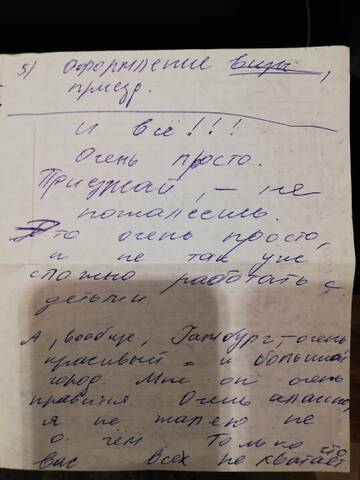 5) Оформление визы,
приезд.
И всё!!!
Очень просто.
Приезжай, – не
пожалеешь.
Это очень просто,
и не так уж
сложно работать с
детьми.
А, вообще, Гамбург, – очень
красивый и большой
город. Мне он очень
нравится. Очень
я не жалею не
о чём. Только что
вас всех не хватает